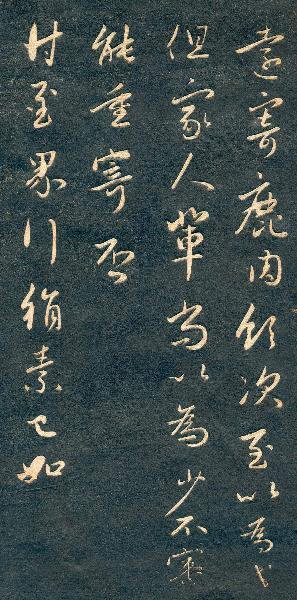 遠寄鹿肉次至以為
但家人輩尚以為少不審
能重寄否
付至界行絹素已如